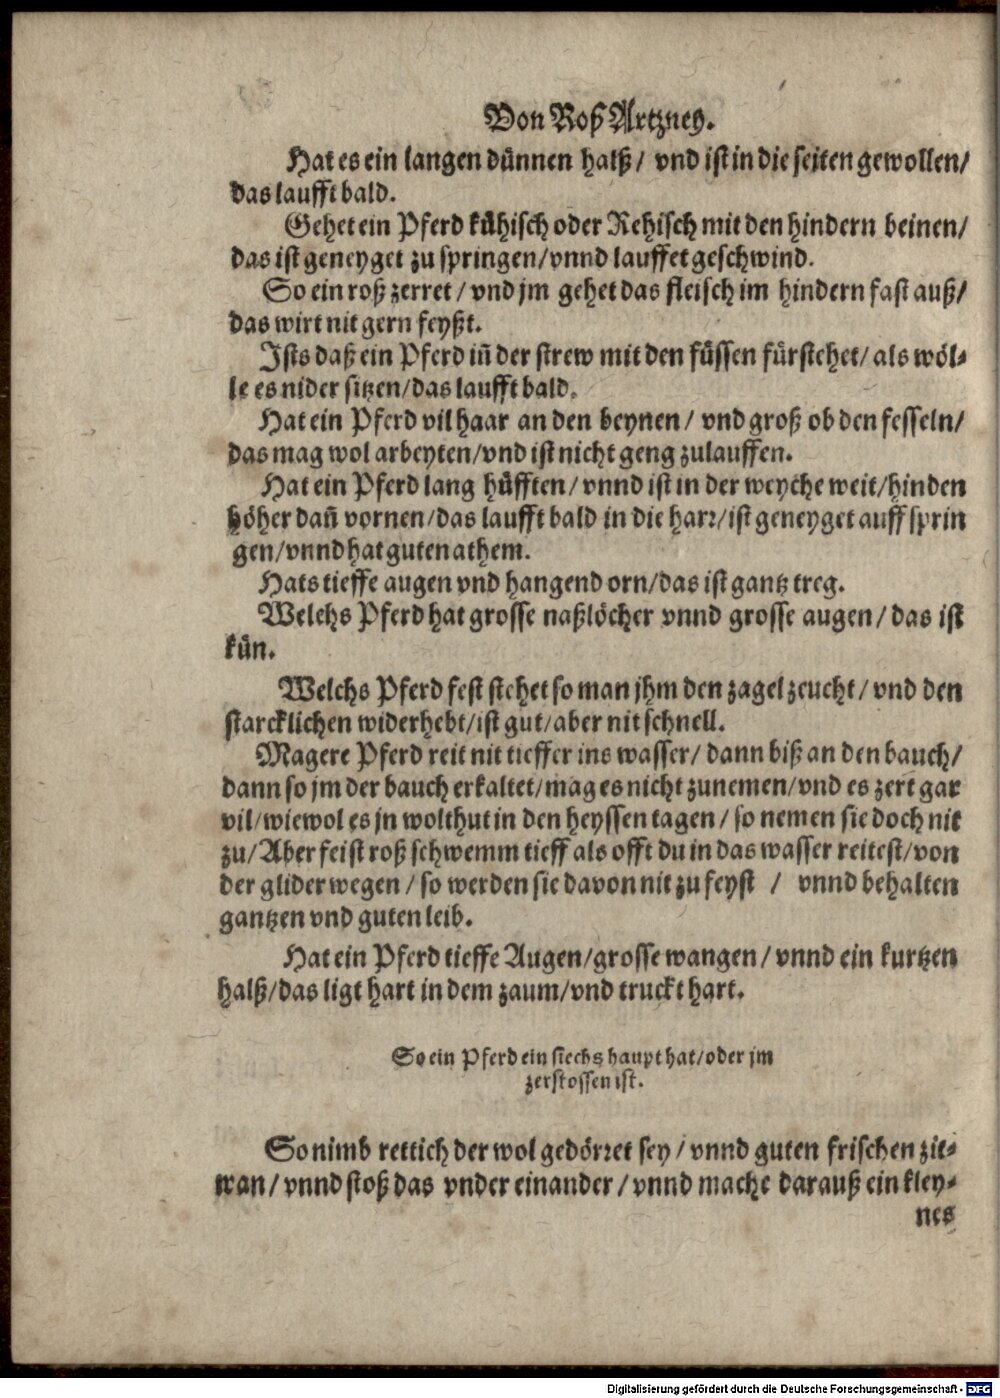 Von Roß Artzney.
Hat es ein langen dünnen halß / vnd ist in die seiten gewollen/
das laufft bald.
Gehet ein Pferd kühisch oder Rehisch mit den hindern beinen/
das ist geneyget zu springen/vnnd lauffet geschwind.
So ein roß zerret / vnd jm gehet das fleisch im hindern fast auß/
das wirt nit gern feyßt.
Ists daß ein Pferd iñ der strew mit den füssen fürstehet/ als wöl-
le es nider sitzen/das laufft bald.
Hat ein Pferd vil haar an den beynen / vnd groß ob den fesseln/
das mag wol arbeyten/vnd ist nicht geng zulauffen.
Hat ein Pferd lang hüfften/ vnnd ist in der weyche weit/hinden
höher dañ vornen/das laufft bald in die harr/ist geneyget auff sprin
gen/vnnd hat guten athem.
Hats tieffe augen vnd hangend orn/das ist gantz treg.
Welchs Pferd hat grosse naßlöcher vnnd grosse augen/ das ist
kün.
Welchs Pferd fest stehet so man jhm den zagel zeucht/ vnd den
starcklichen widerhebt/ist gut/aber nit schnell.
Magere Pferd reit nit tieffer ins wasser/ dann biß an den bauch/
dann so jm der bauch erkaltet/mag es nicht zunemen/vnd es zert gar
vil/wiewol es jn wolthut in den heyssen tagen / so nemen sie doch nit
zu/Aber feist roß schwemm tieff als offt du in das wasser reitest/von
der glider wegen / so werden sie davon nit zu feyst / vnnd behalten
gantzen vnd guten leib.
Hat ein Pferd tieffe Augen/grosse wangen / vnnd ein kurtzen
halß/das ligt hart in dem zaum/vnd truckt hart.
So ein Pferd ein siechs haupt hat/oder jm
zerstossen ist.
So nimb rettich der wol gedörret sey / vnnd guten frischen zit-
wan / vnnd stoß das vnder einander / vnnd mache darauß ein kley-
nes
Digitalisierung gefördert durch die Deutsche Forschungsgemeinschaft - DFG